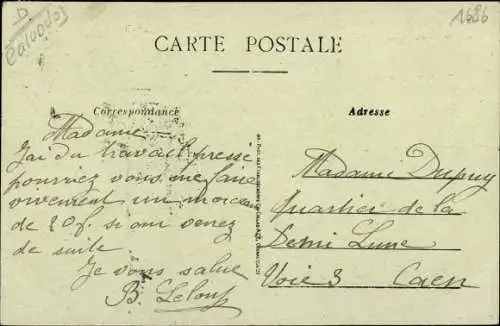 D
Calvados
1686
CARTE POSTALE
Correspondance
Adresse
Madame
J'ai du travail pressé
pourriez vous me faire
vivement un morceau
de 20f. si oui venez
de suite
Je vous salue
B. Leloup
Madame Dupuy
Quartier de la
Demi Lune
Voie 3 Caen